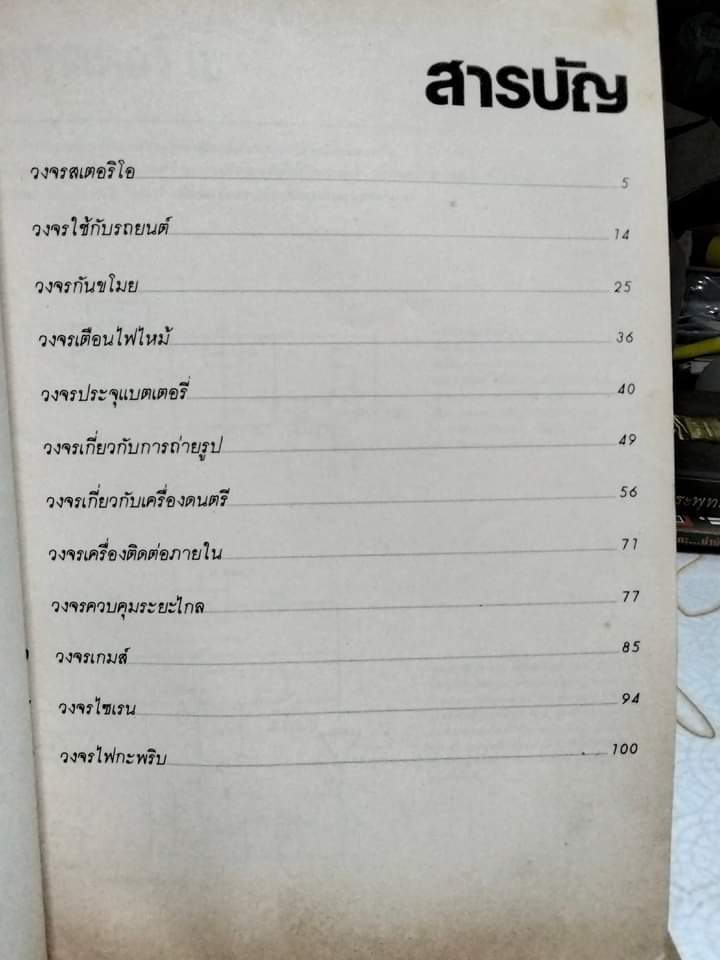 สารบัญ
วงจรสเตอริโอ 5
วงจรใช้กับรถยนต์ 14
วงจรกันขโมย 25
วงจรเตือนไฟไหม้ 36
วงจรประจุแบตเตอรี่ 40
วงจรเกี่ยวกับการถ่ายรูป 49
วงจรเกี่ยวกับเครื่องดนตรี 56
วงจรเครื่องติดต่อภายใน 71
วงจรควบคุมระยะไกล 77
วงจรเกมส์ 85
วงจรไซเรน 94
วงจรไฟกะพริบ 100